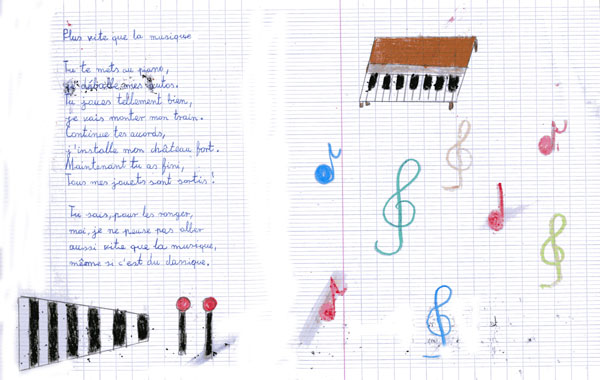 Plus vite que la musique
Tu te mets au piano,
déballe mes autos.
Tu joues tellement bien,
je vais monter mon train.
Continue tes accords,
j'installe mon château fort.
Maintenant tu as fini,
Tous mes jouets sont sortis !
Tu sais, pour les ranger,
moi, je ne peux pas aller
aussi vite que la musique,
même si c'est du classique.